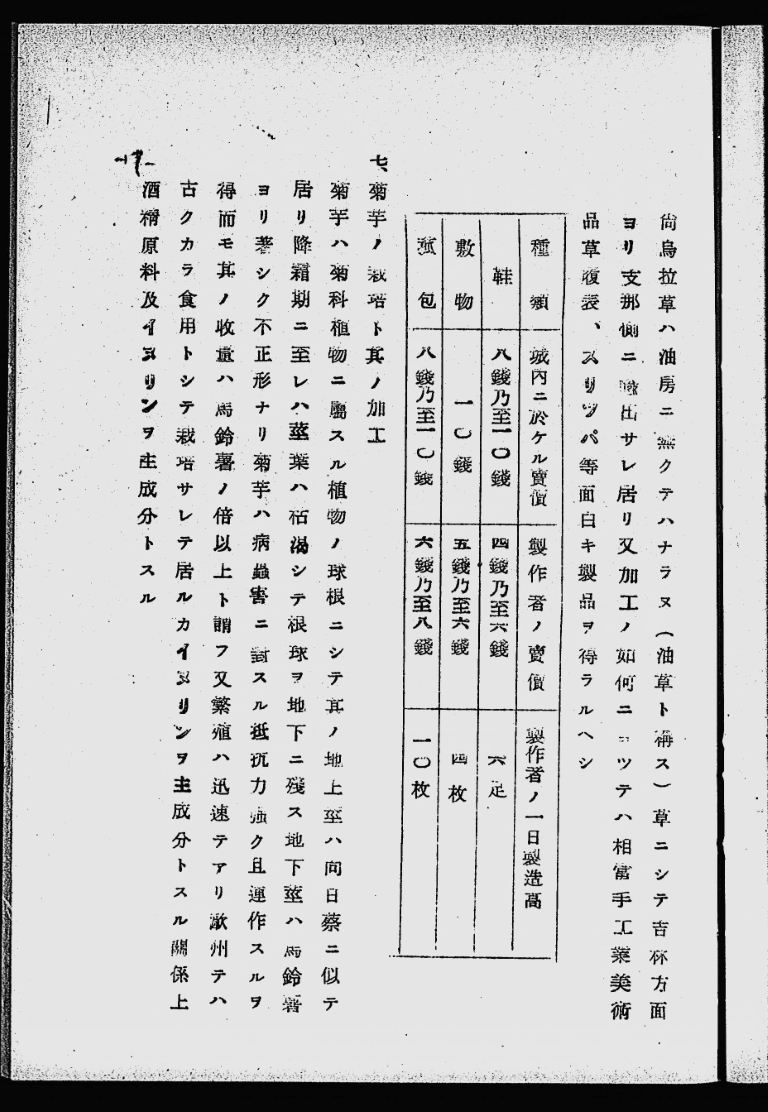 尙烏拉草ハ油房ニ無クテハナラヌ（油草ト稱ス）草ニシテ吉林方面
ヨリ支那側ニ輸出サレ居リ又加工ノ如何ニヨツテハ相當手工業美術
品草履表、スリツパ等面白キ製品ヲ得ラルヘシ
種類 城内ニ於ケル賣價 製作者ノ賣價 製作者ノ一日製造高
鞋 八錢乃至一〇錢 四錢乃至六錢 六足
敷物 一〇錢 五錢乃至六錢 四枚
包 八錢乃至一〇錢 六錢乃至八錢 一〇枚
七、菊芋ノ栽培ト其ノ加工
菊芋ハ菊科植物ニ屬スル植物ノ球根ニシテ其ノ地上莖ハ向日葵ニ似テ
居リ降霜期ニ至レハ莖葉ハ枯渴シテ根球ヲ地下ニ殘ス地下莖ハ馬鈴薯
ヨリ著シク不正形ナリ菊芋ハ病蟲害ニ對スル抵抗力強ク且運作スルヲ
得而モ其ノ收量ハ馬鈴薯ノ倍以上ト謂フ又繁殖ハ迅速テアリ歐州テハ
古クカラ食用トシテ栽培サレテ居ルカイヌリンヲ主成分トスル關係上
酒精原料及イヌリンヲ主成分トスル